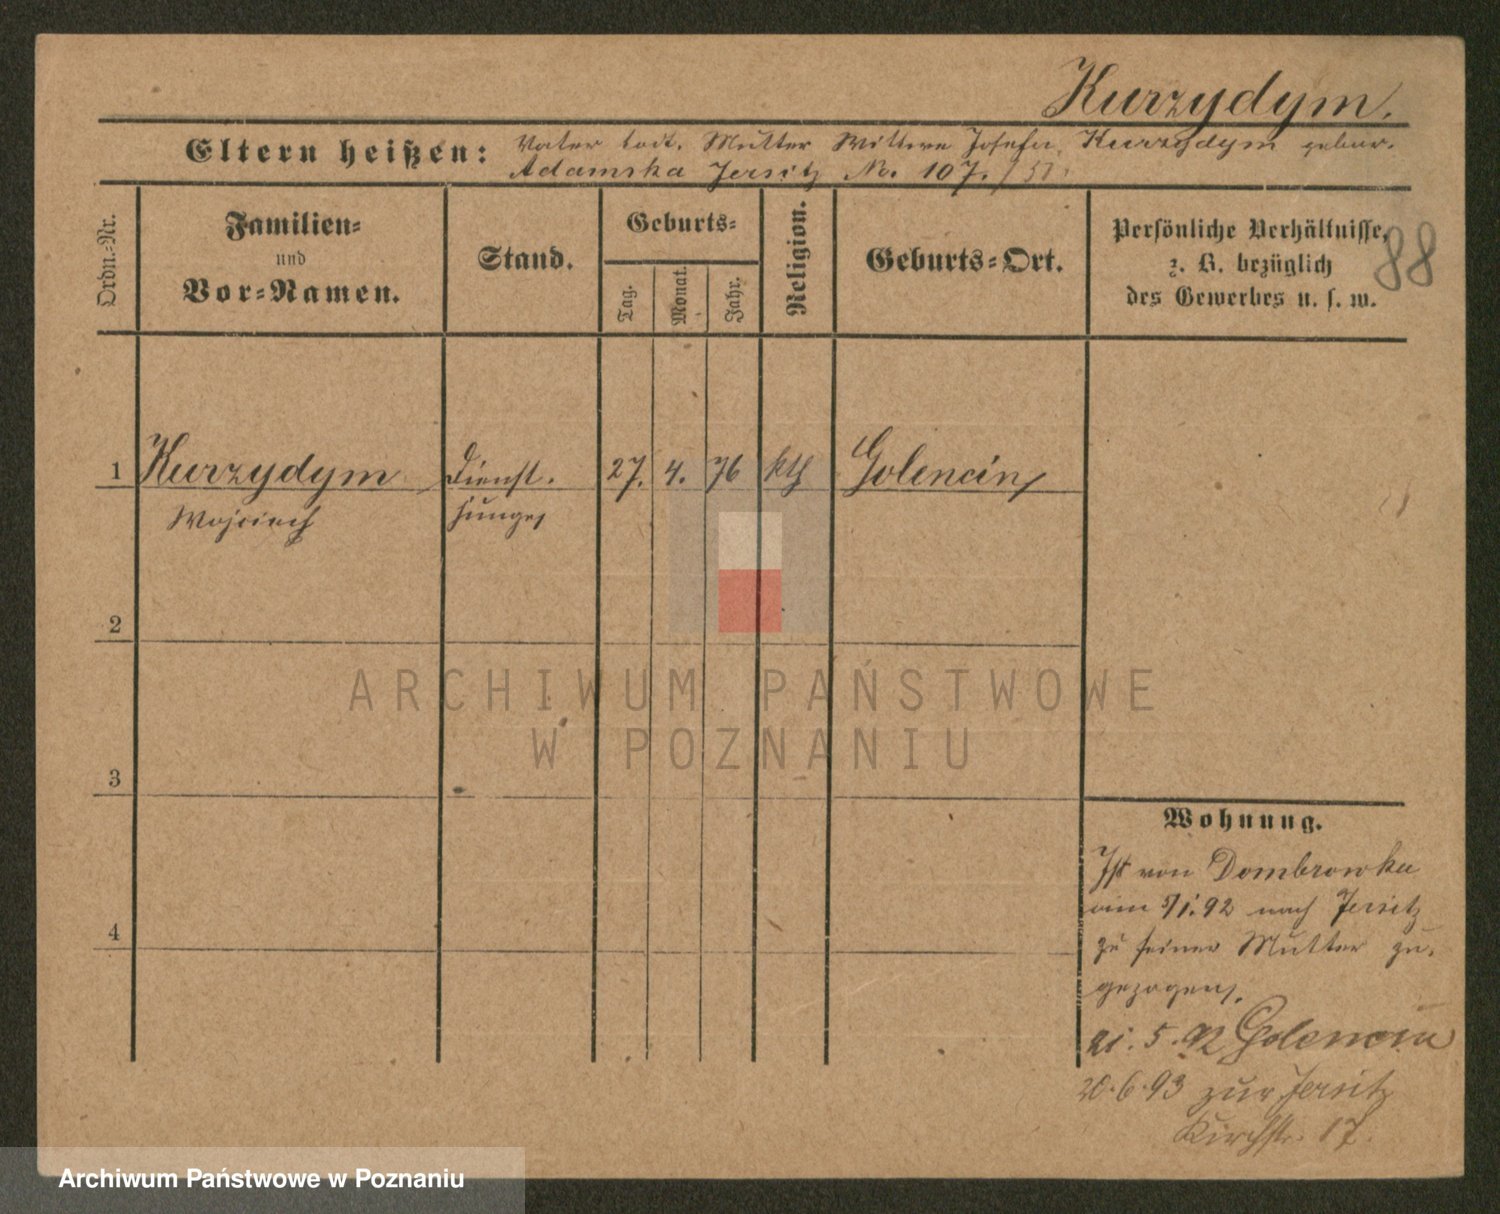 Kurzydym.
Eltern heißen: Vater todt. Mutter Wittwe Josefa Kurzydym gebor.
Adamska Jersitz No. 107./51.
Ordn.-Nr.
Familien-
und
Vor-Namen.
Stand.
Geburts-
Tag.
Monat.
Jahr.
Religion.
Geburts-Ort.
Persönliche Verhältnisse,
z. B. bezüglich
des Gewerbes u. s. w.
88
1 Kurzydym Dienst- 27. 4. 76 kth Golencin
Wojciech junge
2
3
4
Wohnung.
Ist von Dombrowka
am 5/1.92 nach Jersitz
zu seiner Mutter zu-
gezogen.
21. 5. 92 Golencin
20.6.93 zur Jersitz
Kirchstr. 17.
ARCHIWUM PAŃSTWOWE
W POZNANIU
Archiwum Państwowe w Poznaniu